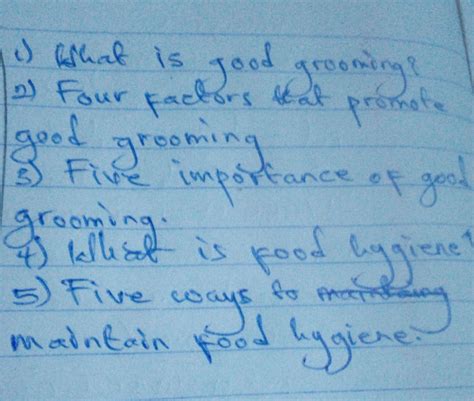 1) What is good grooming?
2) Four factors that promote
good grooming
3) Five importance of good
grooming.
4) What is food hygiene?
5) Five ways to
maintain food hygiene.